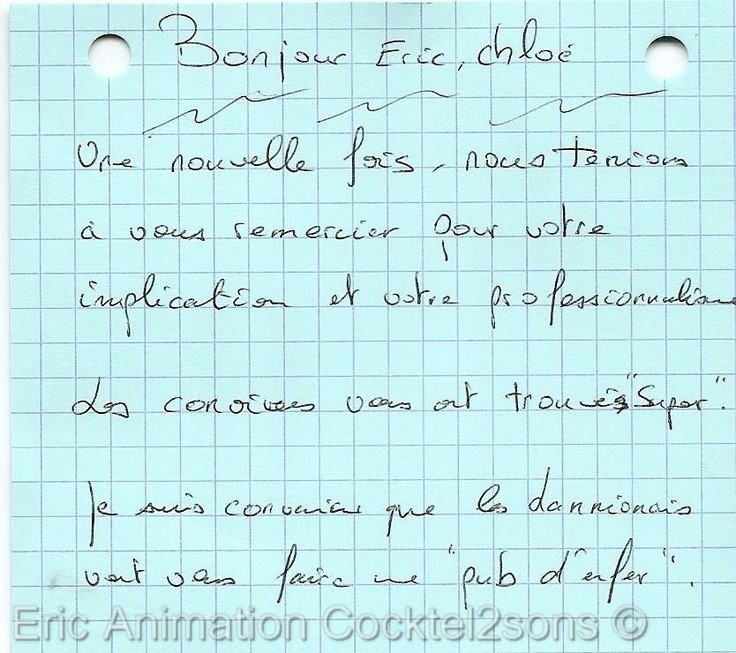 Bonjour Eric, chloé
Une nouvelle fois, nous tenions
à vous remercier pour votre
implication et votre professionnalisme
Les convives vous ont trouvés "Super".
Je suis convaincu que les dannionais
vont vous faire une "pub d'enfer".
Eric Animation Cocktel2sons ©